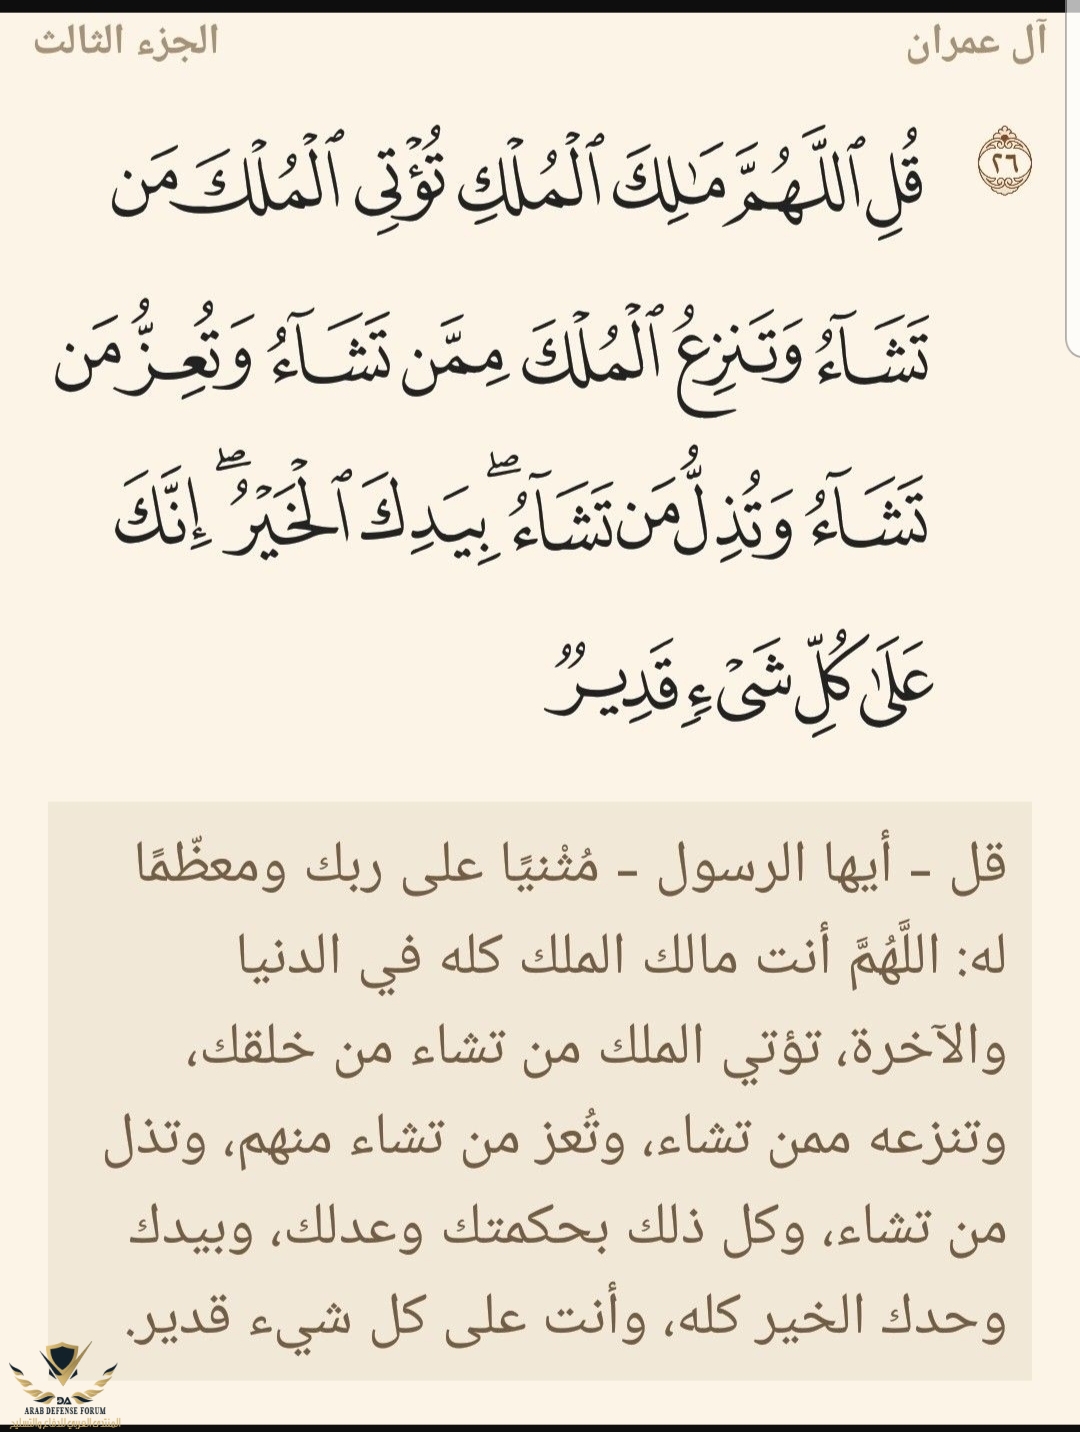 آل عمران
الجزء الثالث
٢٦
قُلِ ٱللَّهُمَّ مَٰلِكَ ٱلْمُلْكِ تُؤْتِى ٱلْمُلْكَ مَن
تَشَآءُ وَتَنزِعُ ٱلْمُلْكَ مِمَّن تَشَآءُ وَتُعِزُّ مَن
تَشَآءُ وَتُذِلُّ مَن تَشَآءُ ۖ بِيَدِكَ ٱلْخَيْرُ ۖ إِنَّكَ
عَلَىٰ كُلِّ شَىْءٍ قَدِيرٌ
قل - أيها الرسول - مُثْنيًا على ربك ومعظّمًا
له: اللَّهُمَّ أنت مالك الملك كله في الدنيا
والآخرة، تؤتي الملك من تشاء من خلقك،
وتنزعه ممن تشاء، وتُعز من تشاء منهم، وتذل
من تشاء، وكل ذلك بحكمتك وعدلك، وبيدك
وحدك الخير كله، وأنت على كل شيء قدير.
DA
ARAB DEFENSE FORUM
المنتدى العربي للدفاع والتسليح